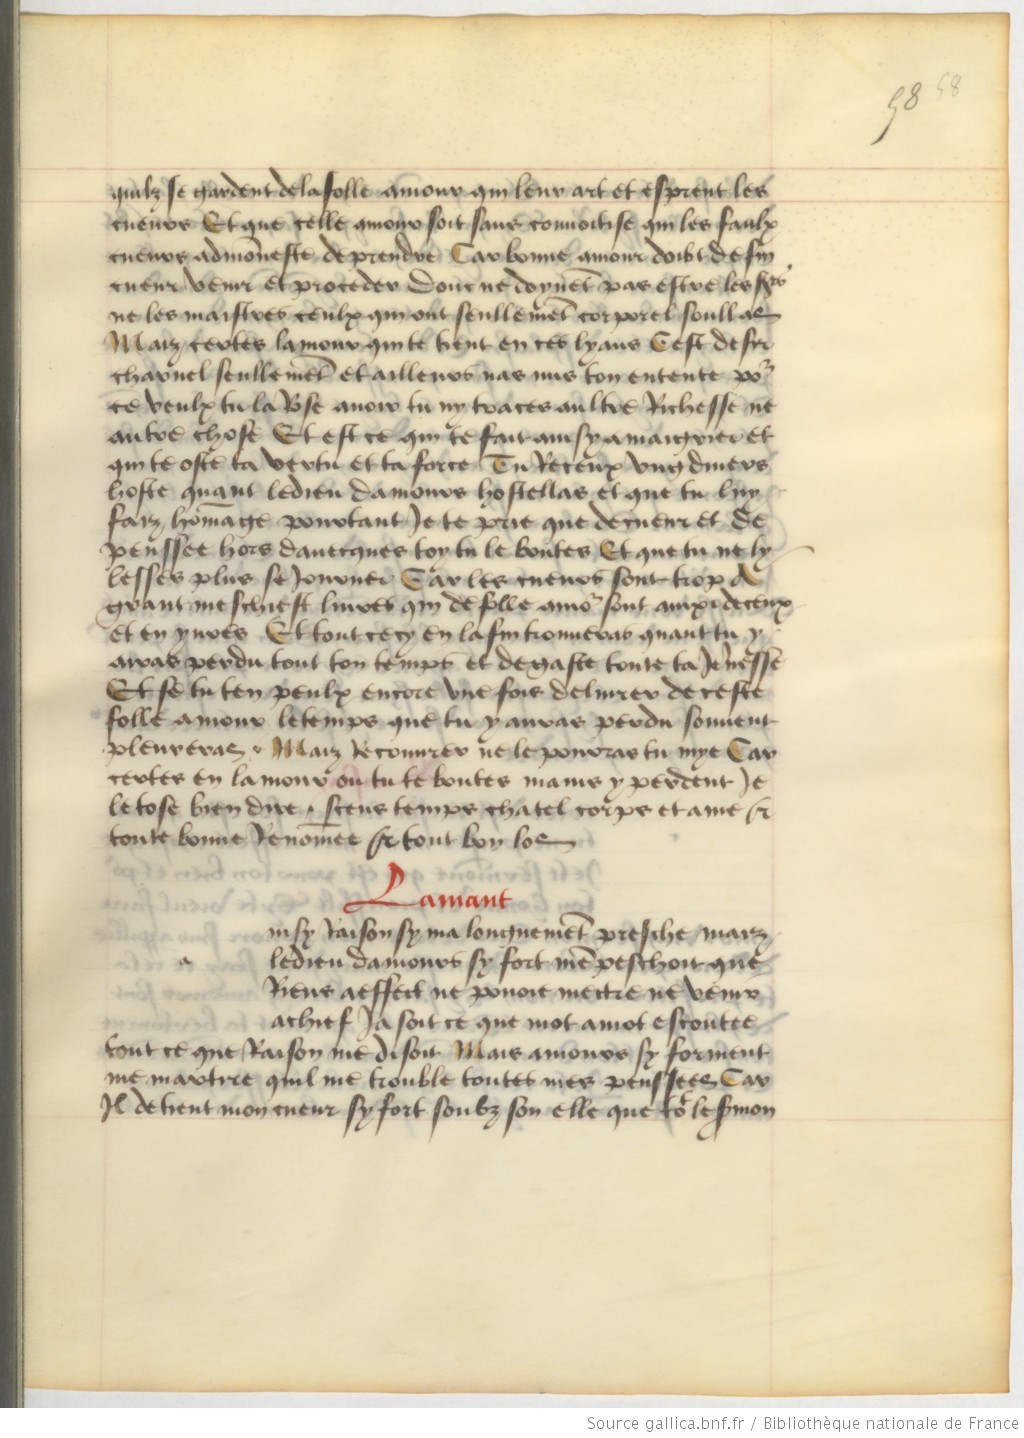 58 58
quilz se gardent de la folle amour qui leur art et esprent les
cueurs Et que celle amour soit sans convoitise qui les faulx
cueurs admoneste de prendre Car bonne amour doibt de fin
cueur venir et proceder Donc ne doyuẽt pas estre les
ne les maistres ceulx qui ont seullemẽt corporel soullas
Maiz certes lamour qui te tient en ces lyans Cest desir
charnel seullemẽt et ailleurs nas mis ton entente por
ce veulx tu la Rose auoir tu ny traces aultre Richesse ne
autre chose Et est ce qui te fait ainsy amaigrier et
qui te oste ta vertu et ta force Tu Receux vng diuers
hoste quant le dieu damours hostellas et que tu luy
faiz hõmage pourtant Je te prie que de cueur et de
penssee hors dauecques toy tu le boutes Et que tu ne ly
lesses plus se Journer Car les cueurs sont trop a
grant meschief liures qui de folle amor sont ainxi deceux
et en yures Et tout cecy en la fin trouueras quant tu y
auras perdu tout ton temps et degaste toute ta Jeunesse
Et se tu ten peulx encore vne fois deliurer de ceste
folle amour le temps que tu y auras perdu souuent
pleureras Maiz Recouurer ne le pourras tu mye Car
certes en lamour ou tu te boutes mains y perdent Je
le tose bien dire sceus temps chatel corps et ame et
toute bonne Renõmee et tout bon los
Lamant
a
insy Raison sy ma longuemẽt presche maiz
le dieu damours sy fort mẽpeschoit que
Riens a effect ne pouoie mectre ne venir
a chief Ja soit ce que mot a mot escoutee
tout ce que Raison me disoit Mais amours sy forment
me martire quil me trouble toutes mes penssees Car
Il detient mon cueur sy fort soubz son elle que le sermon
Source gallica.bnf.fr / Bibliothèque nationale de France